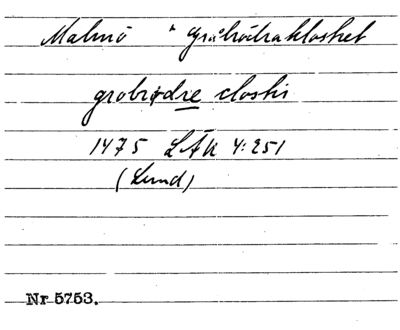 Malmö * Gråbrödraklostret
grobrødre closter
1475 LÄU 4:251
(Lund)
Nr 5753.